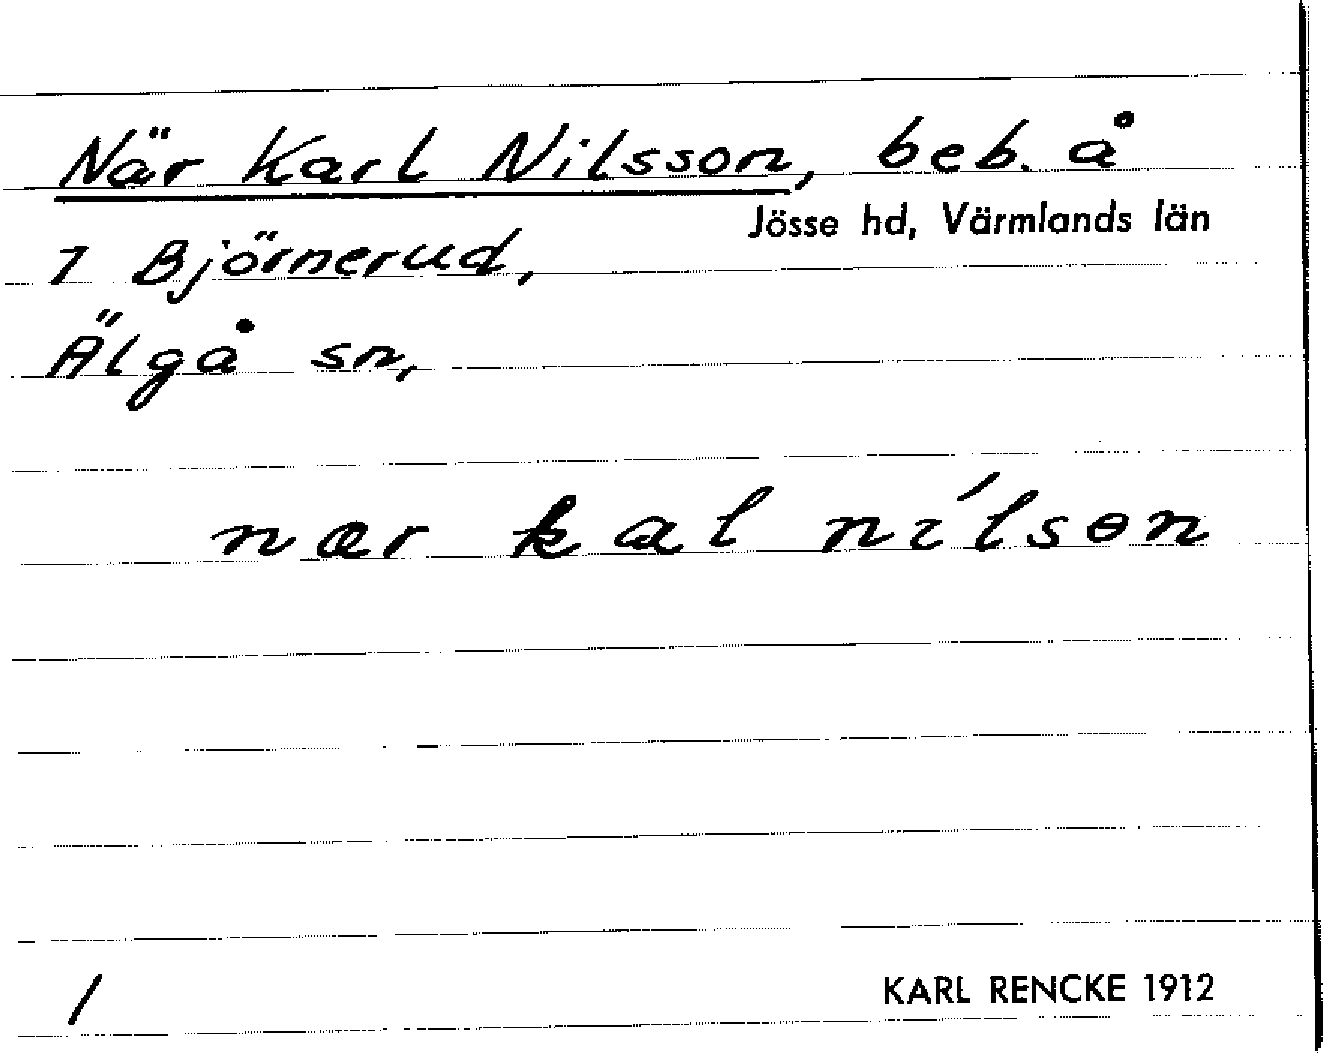 När Karl Nilsson, beb. å
Jösse hd, Värmlands län
7 Björnerud,
Älgå sn,
nær kal ni'lsɵn
/
KARL RENCKE 1912